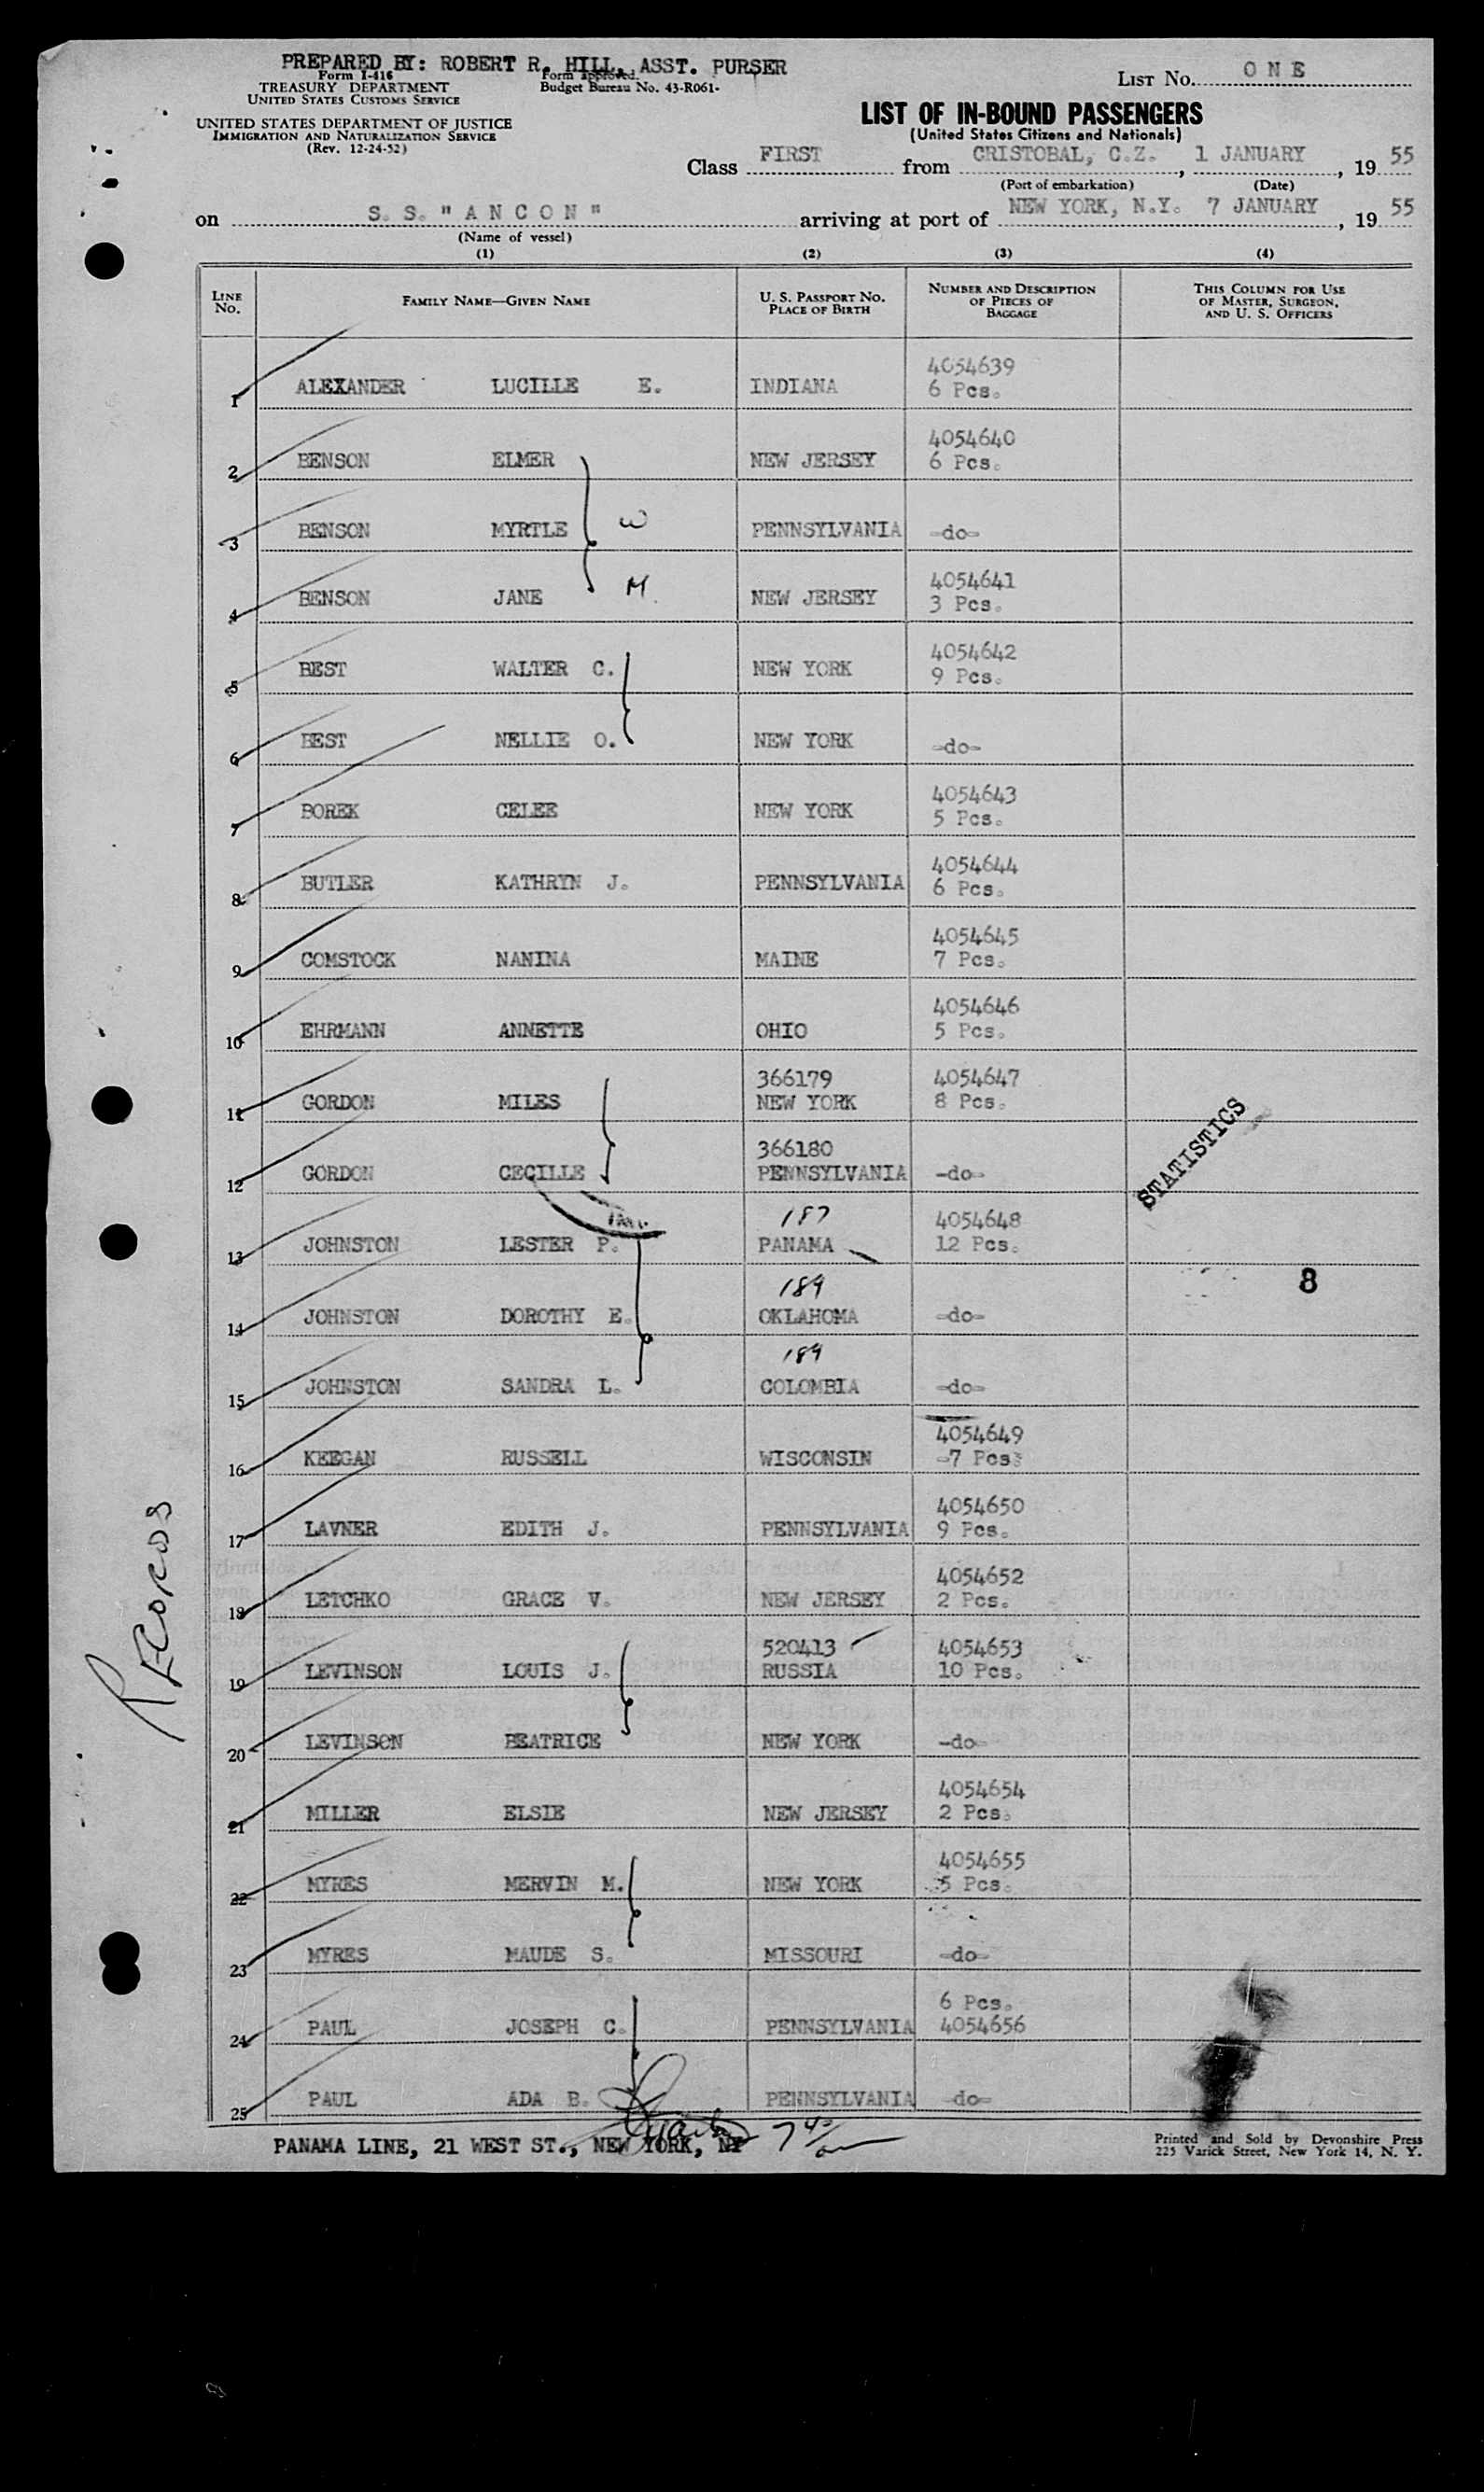 PREPARED BY: ROBERT R. HILL, ASST. PURSER
Form I-416
TREASURY DEPARTMENT
UNITED STATES CUSTOMS SERVICE
Form approved.
Budget Bureau No. 43-R061-
LIST No. ONE
UNITED STATES DEPARTMENT OF JUSTICE
IMMIGRATION AND NATURALIZATION SERVICE
(Rev. 12-24-52)
LIST OF IN-BOUND PASSENGERS
(United States Citizens and Nationals)
Class FIRST from CRISTOBAL, C.Z., 1 JANUARY, 19 55
(Port of embarkation) (Date)
on S. S. "ANCON" arriving at port of NEW YORK, N.Y. 7 JANUARY, 19 55
(Name of vessel)
(1) (2) (3) (4)
LINE No. FAMILY NAME—GIVEN NAME U. S. PASSPORT No. PLACE OF BIRTH NUMBER AND DESCRIPTION OF PIECES OF BAGGAGE THIS COLUMN FOR USE OF MASTER, SURGEON, AND U. S. OFFICERS
4054639
1 ALEXANDER LUCILLE E. INDIANA 6 Pcs.
4054640
2 BENSON ELMER NEW JERSEY 6 Pcs.
3 BENSON MYRTLE W PENNSYLVANIA -do-
4054641
4 BENSON JANE M. NEW JERSEY 3 Pcs.
4054642
5 BEST WALTER C. NEW YORK 9 Pcs.
6 BEST NELLIE O. NEW YORK -do-
4054643
7 BOREK CELEE NEW YORK 5 Pcs.
4054644
8 BUTLER KATHRYN J. PENNSYLVANIA 6 Pcs.
4054645
9 COMSTOCK NANINA MAINE 7 Pcs.
4054646
10 EHRMANN ANNETTE OHIO 5 Pcs.
366179 4054647
11 GORDON MILES NEW YORK 8 Pcs.
366180
12 GORDON CECILLE PENNSYLVANIA -do-
STATISTICS
187 4054648
13 JOHNSTON LESTER P. PANAMA 12 Pcs.
189 8
14 JOHNSTON DOROTHY E. OKLAHOMA -do-
189
15 JOHNSTON SANDRA L. COLOMBIA -do-
4054649
16 KEEGAN RUSSELL WISCONSIN 7 Pcs
4054650
17 LAVNER EDITH J. PENNSYLVANIA 9 Pcs.
4054652
18 LETCHKO GRACE V. NEW JERSEY 2 Pcs.
520413 4054653
19 LEVINSON LOUIS J. RUSSIA 10 Pcs.
20 LEVINSON BEATRICE NEW YORK -do-
4054654
21 MILLER ELSIE NEW JERSEY 2 Pcs.
4054655
22 MYRES MERVIN M. NEW YORK 5 Pcs.
23 MYRES MAUDE S. MISSOURI -do-
6 Pcs.
24 PAUL JOSEPH C. PENNSYLVANIA 4054656
25 PAUL ADA B. PENNSYLVANIA -do-
PANAMA LINE, 21 WEST ST., NEW YORK, NY
Printed and Sold by Devonshire Press
225 Varick Street, New York 14, N. Y.
RECORDS